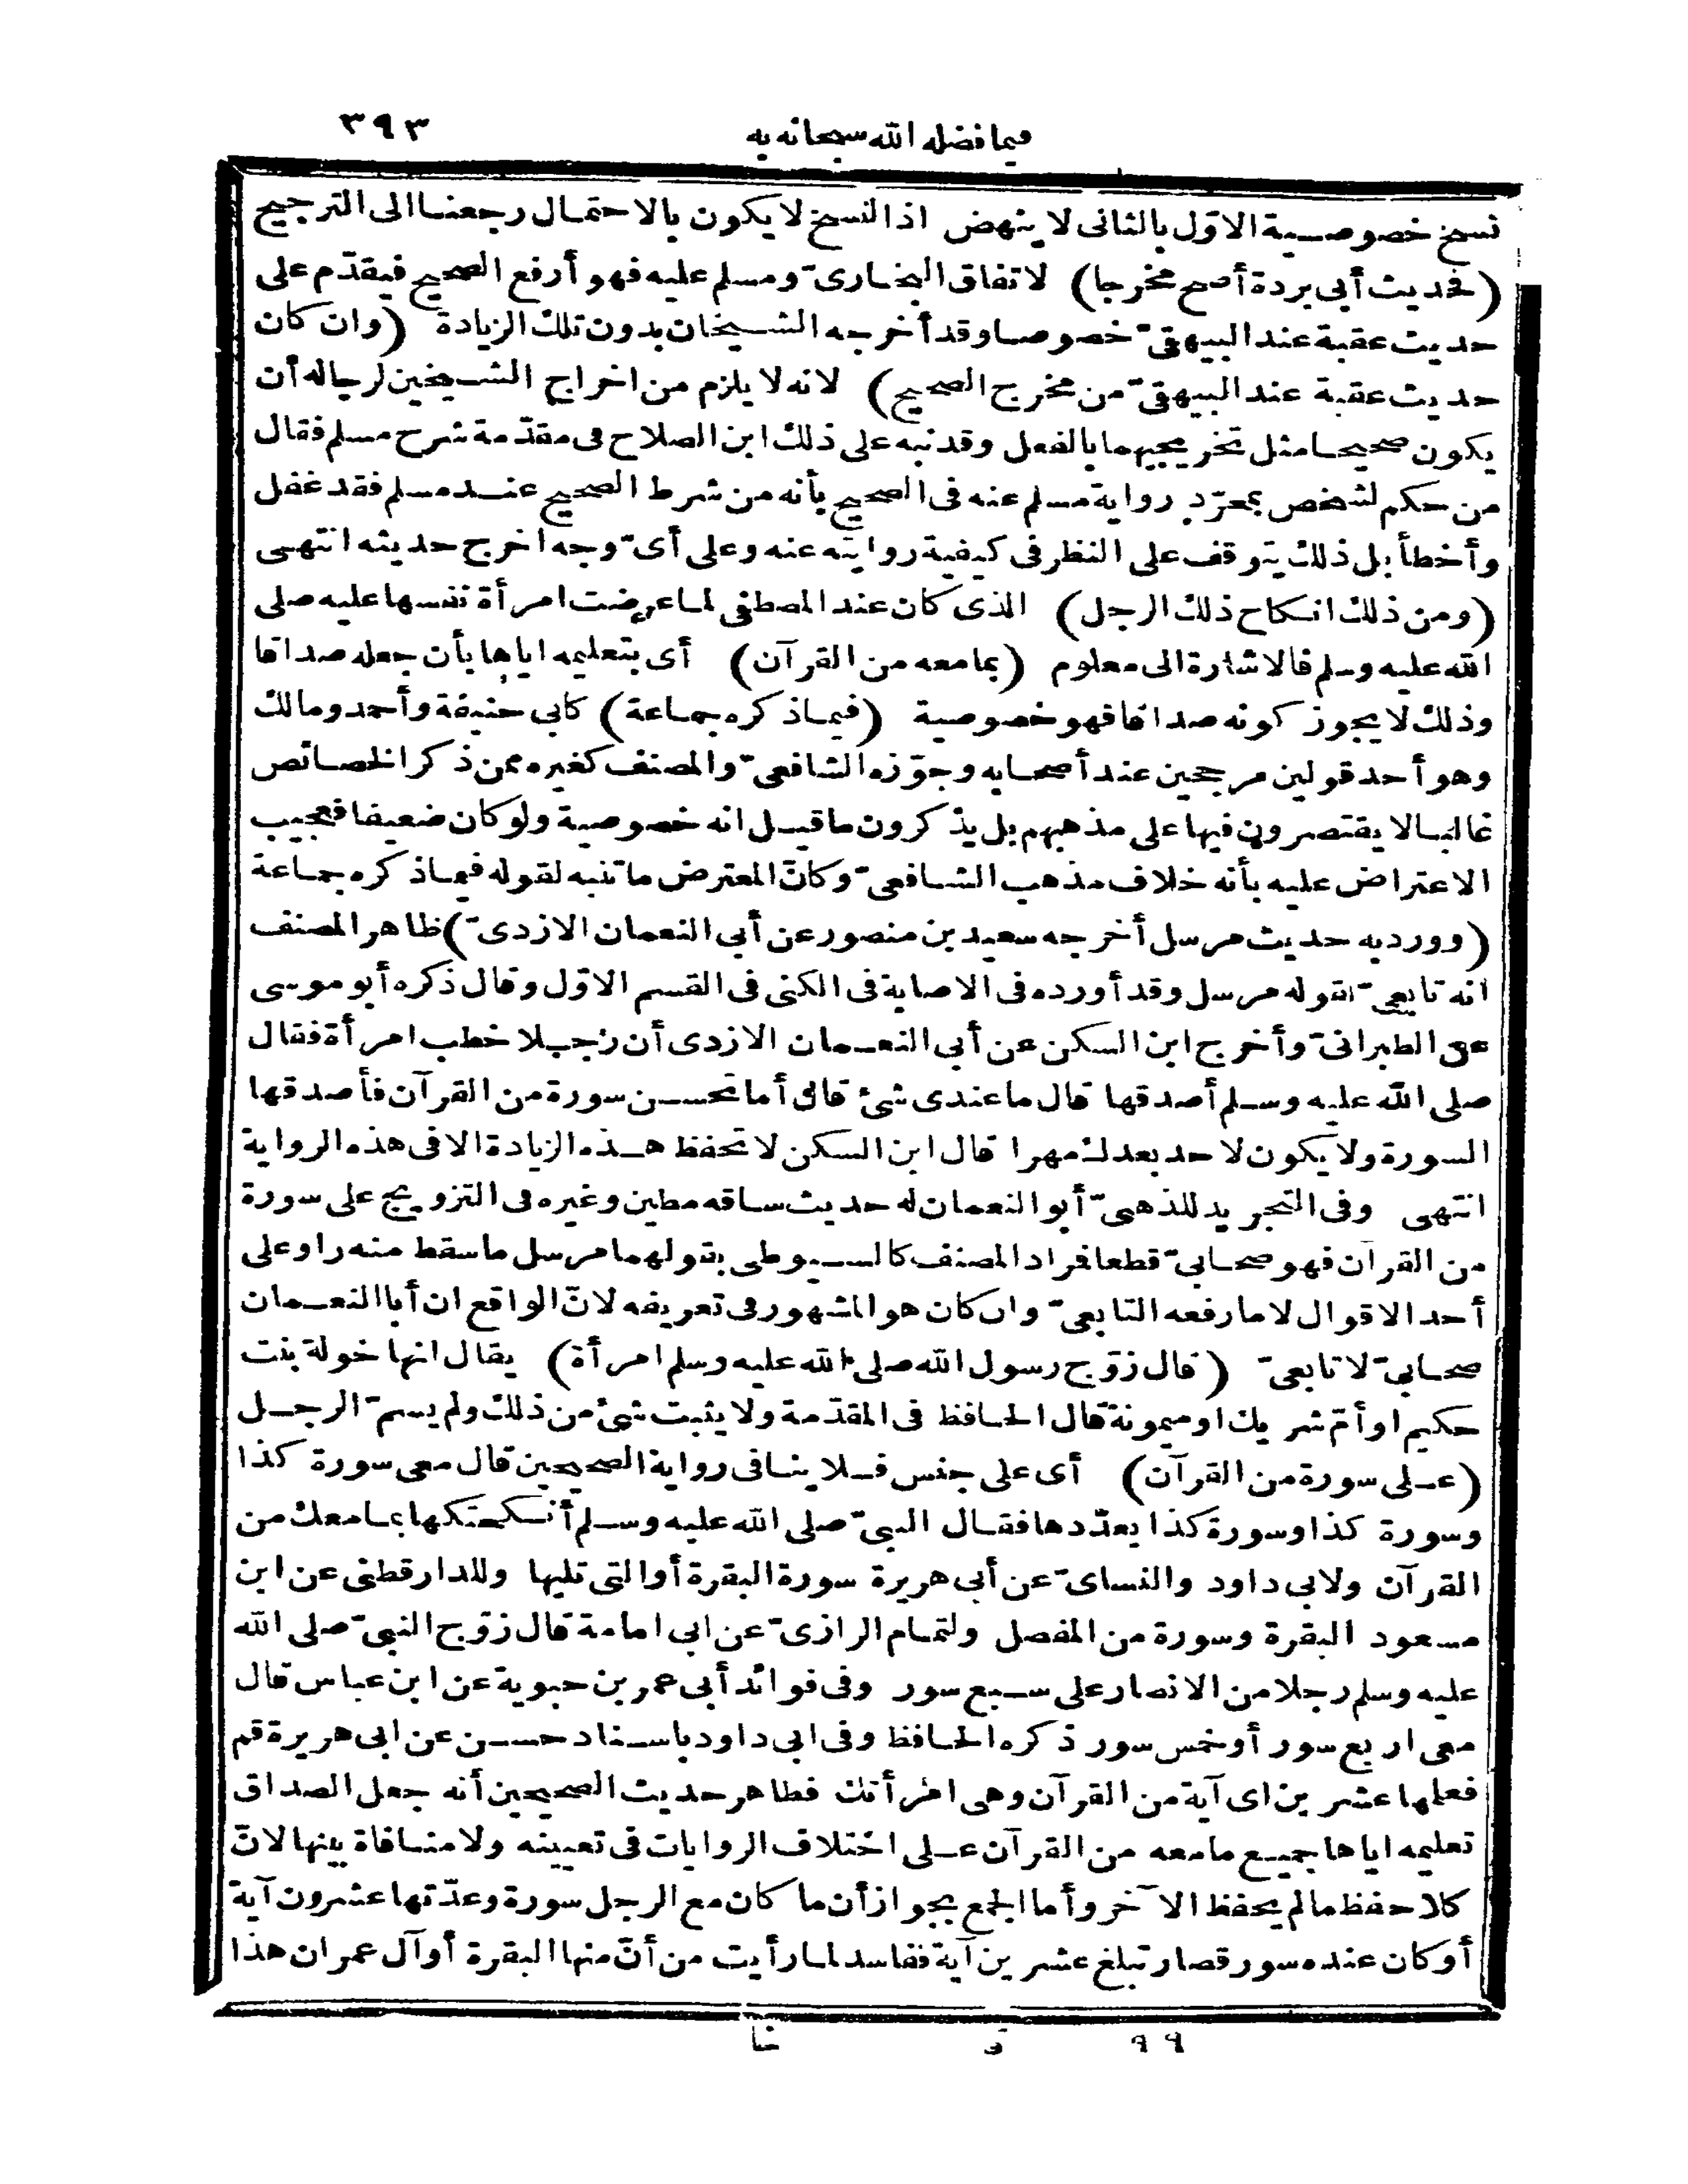 فيما فضله الله سبحانه به ٣٩٣
نسخ خصوصية الاوّل بالثانى لا ينهض اذا النسخ لا يكون بالاحتمال رجعنا الى الترجيح
(فحديث أبى بردة أصح مخرجا) لاتفاق البخارىّ ومسلم عليه فهو أرفع الصحيح فيقدّم على
حديث عقبة عند البيهقىّ خصوصا وقد أخرجه الشيخان بدون تلك الزيادة (وان كان
حديث عقبة عند البيهقىّ من مخرج الصحيح) لانه لا يلزم من اخراج الشيخين لرجاله أن
يكون صحيحا مثل تخريجهما بالفعل وقد نبه على ذلك ابن الصلاح فى مقدّمة شرح مسلم فقال
من حكم لشخص بمجرّد رواية مسلم عنه فى الصحيح بأنه من شرط الصحيح عند مسلم فقد غفل
وأخطأ بل ذلك يتوقف على النظر فى كيفية روايته عنه وعلى أىّ وجه اخرج حديثه انتهى
(ومن ذلك انكاح ذلك الرجل) الذى كان عند المصطفى لما عرضت امرأة نفسها عليه صلى
الله عليه وسلم فالاشارة الى معلوم (بما معه من القرآن) أى بتعليمه اياها بأن جعله صداقا
وذلك لا يجوز كونه صداقا فهو خصوصية (فيما ذكره جماعة) كابى حنيفة وأحمد ومالك
وهو أحد قولين مرجحين عند أصحابه وجوّزه الشافعىّ والمصنف كغيره ممن ذكر الخصائص
غالبا لا يقتصرون فيها على مذهبهم بل يذكرون ما قيل انه خصوصية ولو كان ضعيفا فعجيب
الاعتراض عليه بأنه خلاف مذهب الشافعىّ وكانّ المعترض ما تنبه لقوله فيما ذكره جماعة
(وورد به حديث مرسل أخرجه سعيد بن منصور عن أبى النعمان الازدىّ) ظاهر المصنف
انه تابعىّ لقوله مرسل وقد أورده فى الاصابة فى الكنى فى القسم الاوّل وقال ذكره أبو موسى
عن الطبرانىّ وأخرج ابن السكن عن أبى النعمان الازدى أن رجلا خطب امرأة فقال
صلى الله عليه وسلم أصدقها قال ما عندى شئ قال أما تحسن سورة من القرآن فأصدقها
السورة ولا يكون لاحد بعدك مهرا قال ابن السكن لا تحفظ هذه الزيادة الا فى هذه الرواية
انتهى وفى التجريد للذهبىّ أبو النعمان له حديث ساقه مطين وغيره فى التزويج على سورة
من القرآن فهو صحابىّ قطعا فراد المصنف كالسيوطى بقولهما مرسل ما سقط منه راو على
أحد الاقوال لا ما رفعه التابعىّ وان كان هو المشهور فى تعريفه لانّ الواقع ان أبا النعمان
صحابىّ لا تابعىّ (قال زوّج رسول الله صلى الله عليه وسلم امرأة) يقال انها خولة بنت
حكيم او أمّ شريك او ميمونة قال الحافظ فى المقدّمة ولا يثبت شئ من ذلك ولم يسمّ الرجل
(على سورة من القرآن) أى على جنس فلا ينافى رواية الصحيحين قال معى سورة كذا
وسورة كذا وسورة كذا يعدّدها فقال النبىّ صلى الله عليه وسلم أنكحتكها بما معك من
القرآن ولابى داود والنساىّ عن أبى هريرة سورة البقرة أو التى تليها وللدارقطنى عن ابن
مسعود البقرة وسورة من المفصل ولتمام الرازىّ عن ابى امامة قال زوّج النبىّ صلى الله
عليه وسلم رجلا من الانصار على سبع سور وفى فوائد أبى عمر بن حبوية عن ابن عباس قال
معى اربع سور أو خمس سور ذكره الحافظ وفى ابى داود باسناد حسن عن ابى هريرة قم
فعلمها عشرين اى آية من القرآن وهى امرأتك فظاهر حديث الصحيحين أنه جعل الصداق
تعليمه اياها جميع ما معه من القرآن على اختلاف الروايات فى تعيينه ولا منافاة بينها لانّ
كلا حفظ ما لم يحفظ الآخر وأما الجمع بجواز أن ما كان مع الرجل سورة وعدّتها عشرون آية
أو كان عنده سور قصار تبلغ عشرين آية ففاسد لما رأيت من أنّ منها البقرة أو آل عمران هذا
٩٩ ق خا